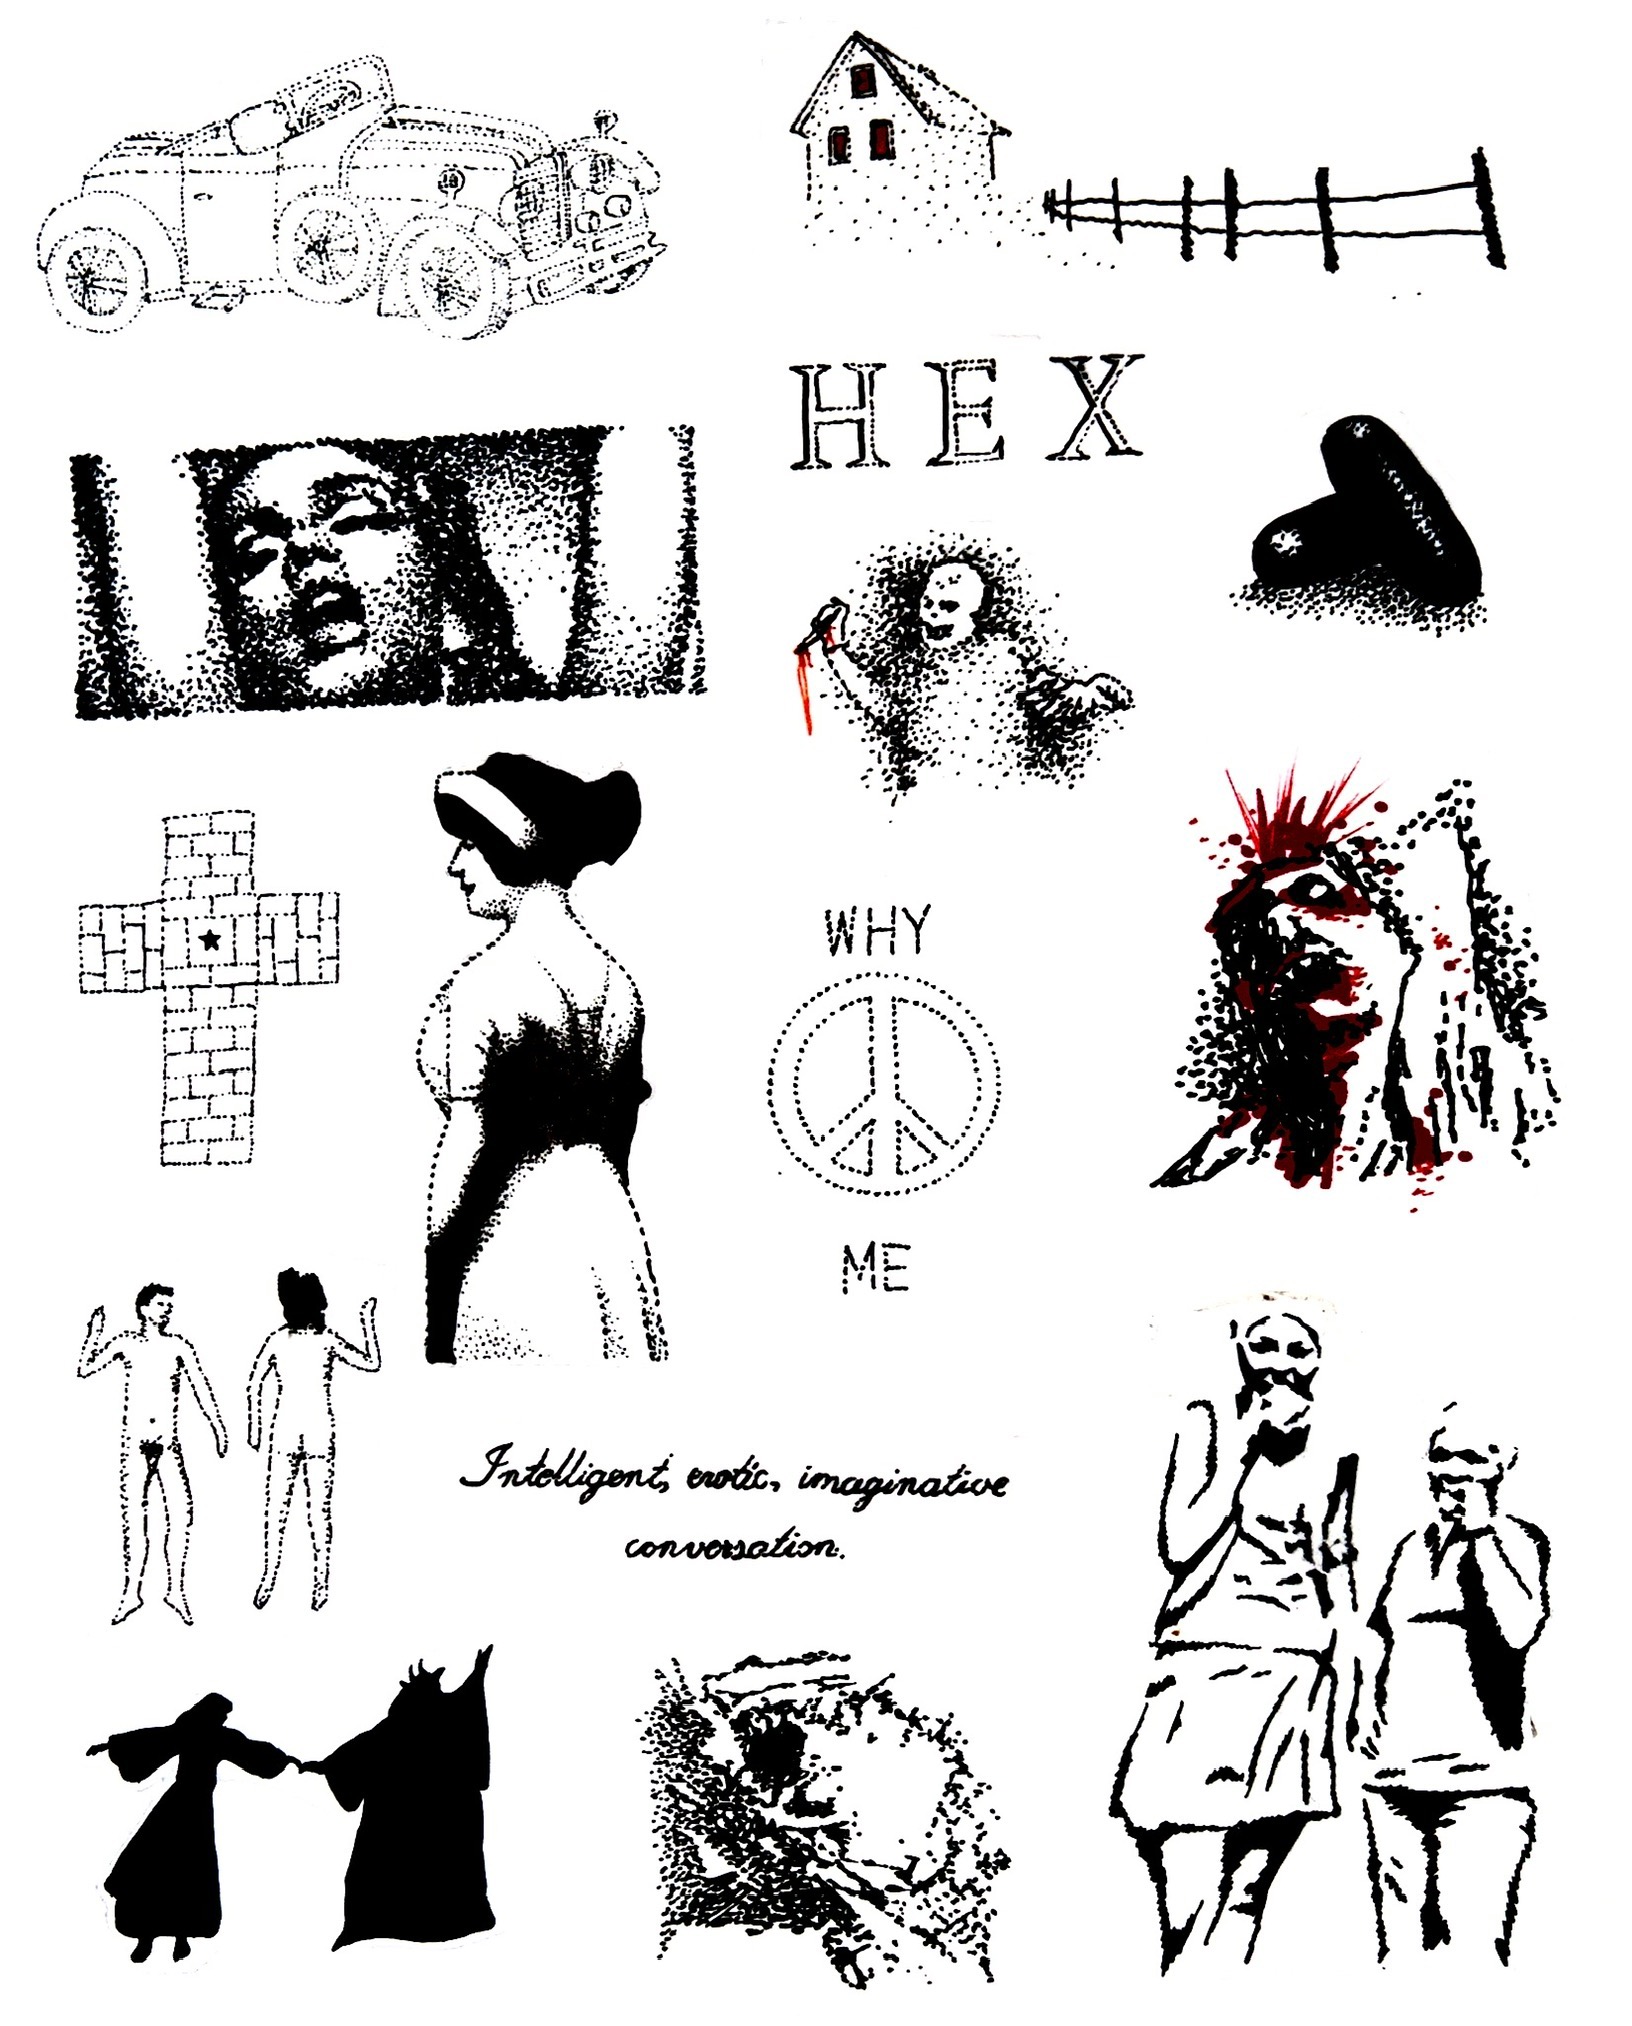 HEX
WHY
ME
Intelligent, erotic, imaginative
conversation.